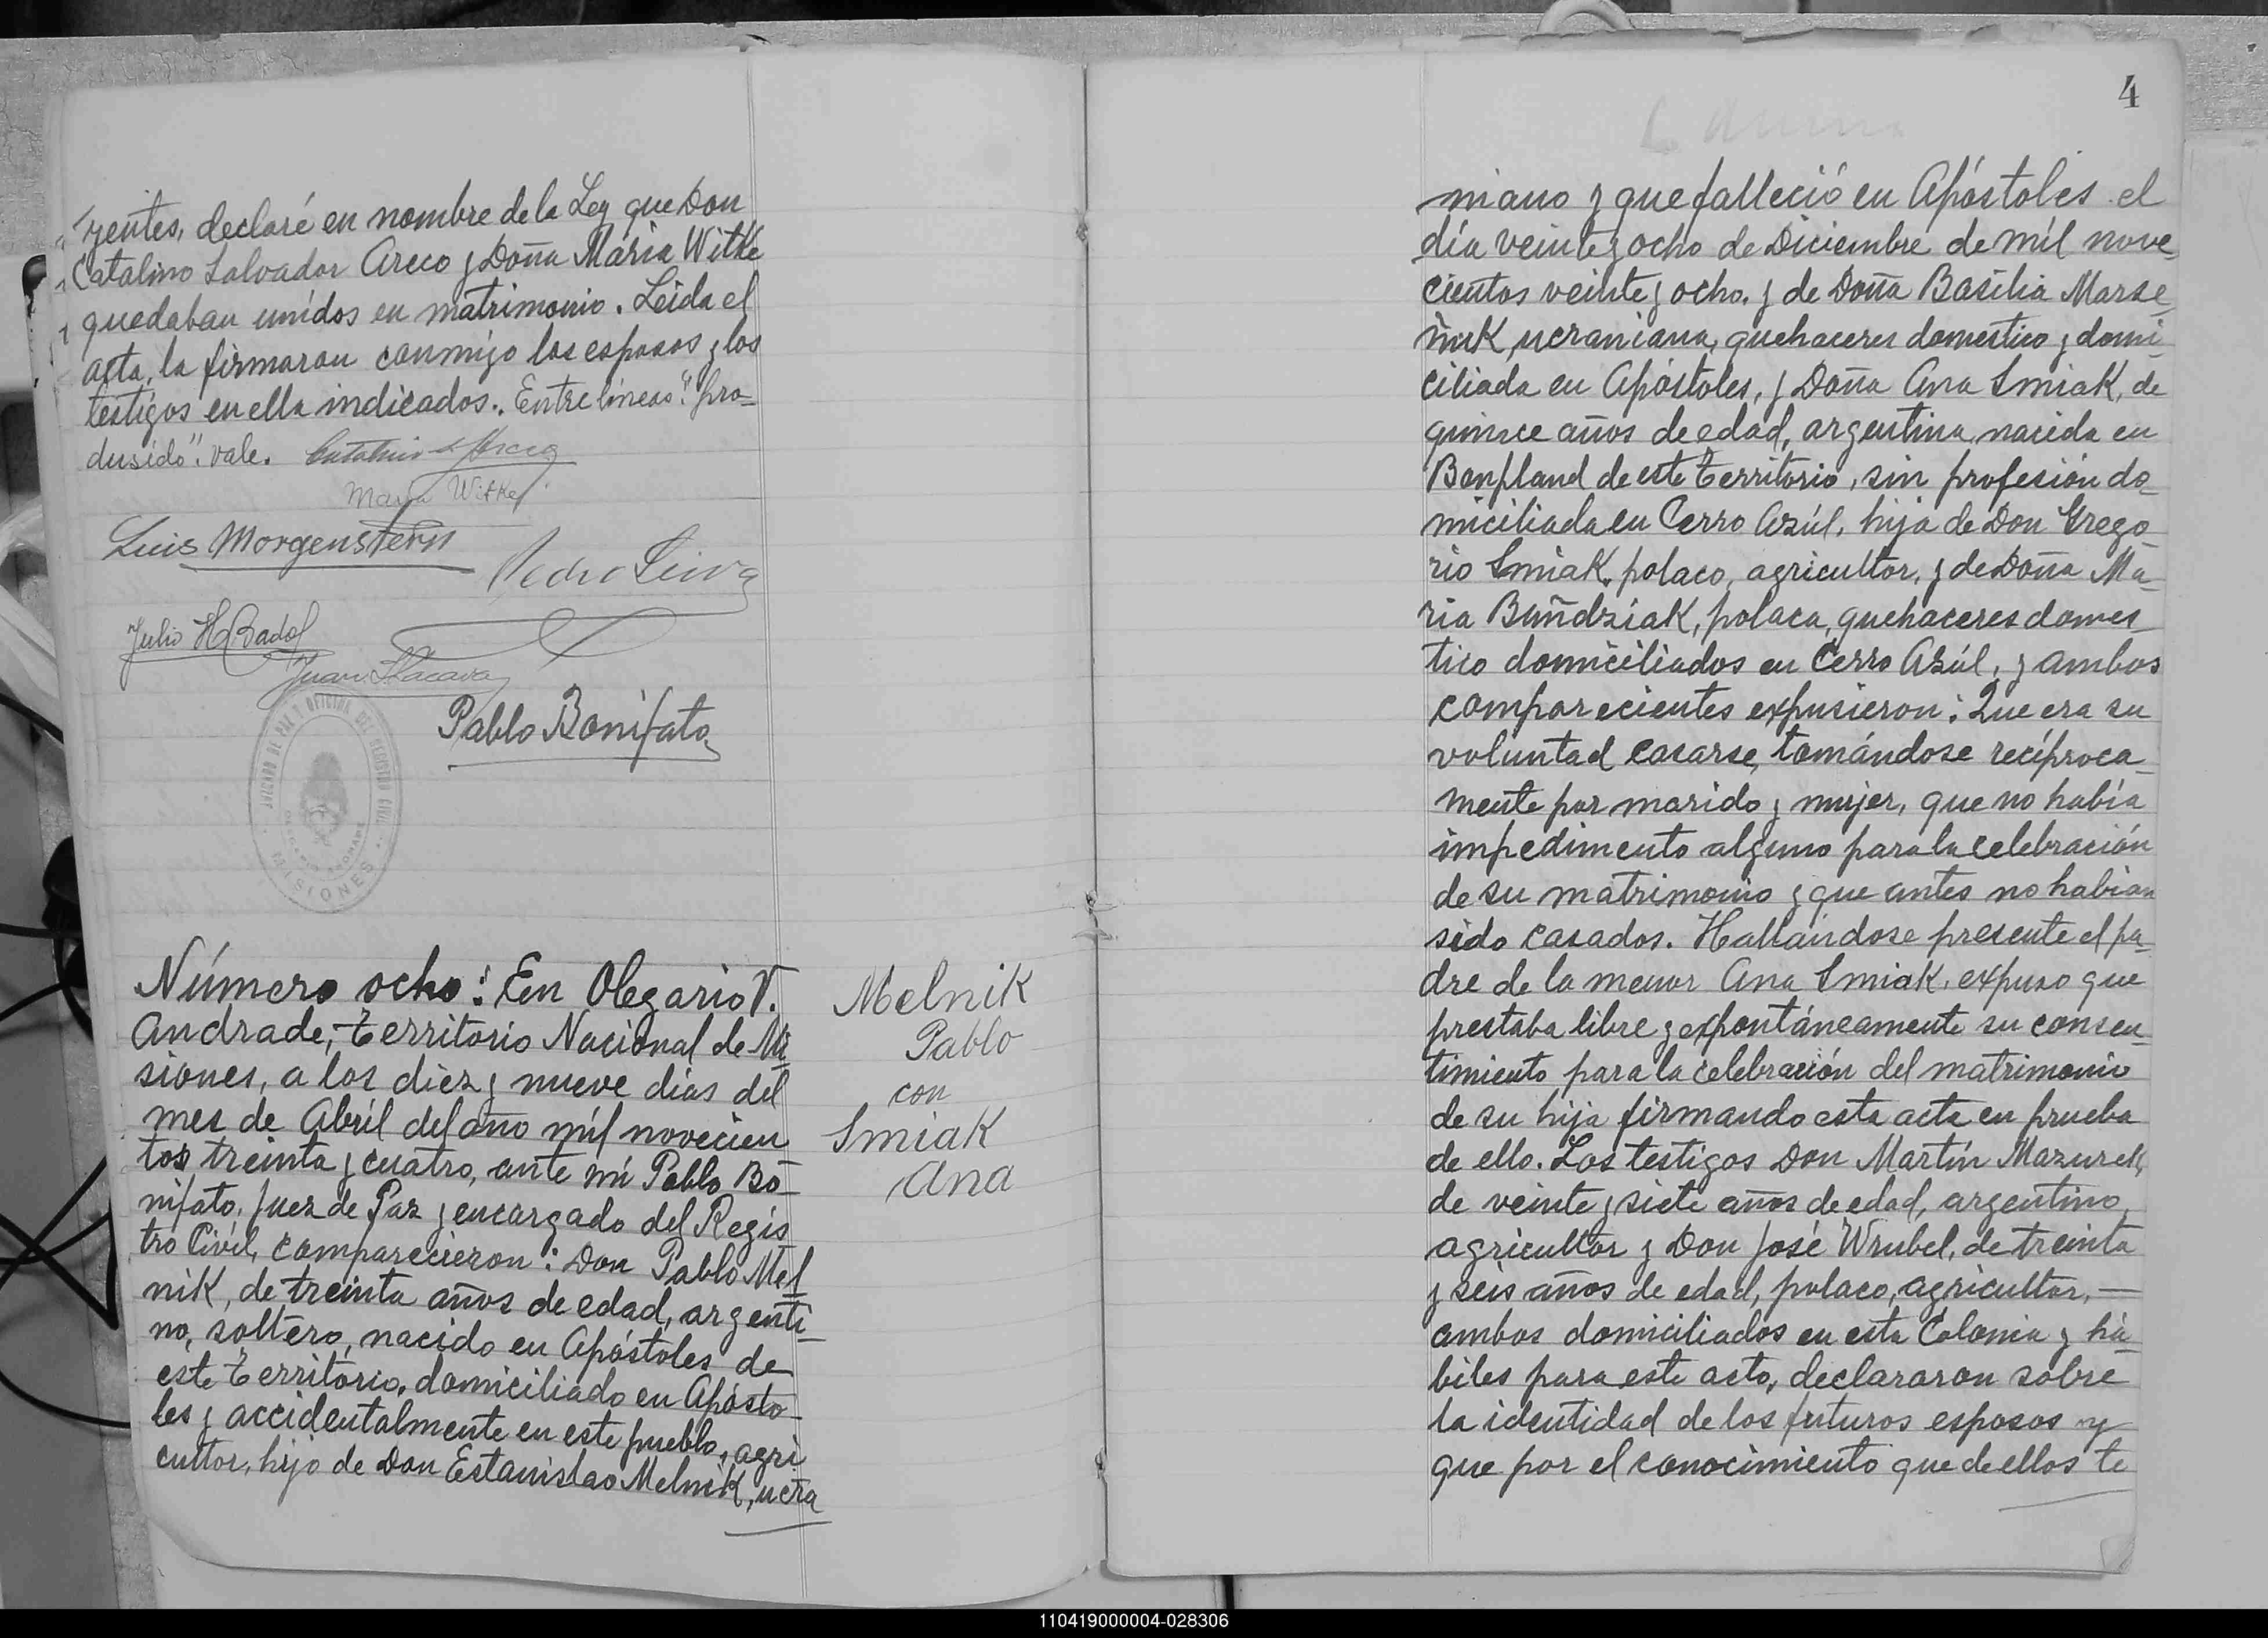 yentes, declaré en nombre de la Ley que Don
Catalino Salvador Areco y Doña María Witke
quedaban unidos en matrimonio. Leida el
acta, la firmaron conmigo los esposos y los
testigos en ella indicados. Entre líneas: "pro-
dusido": vale. Catalino S Areco
Maria Witke
Luis Morgenstern
Pedro Leiva
Julio H Badol
Juan
JUZGADO DE PAZ Y OFICINA DEL REGISTRO CIVIL
MISIONES
Pablo Bonifato
Número ocho: En Olegario V.
Andrade, territorio Nacional de Mi-
siones, a los diez y nueve dias del
mes de Abril del año mil novecien
tos treinta y cuatro, ante mí Pablo Bo-
nifato, Juez de Paz y encargado del Regis
tro Civil, comparecieron: Don Pablo Mel
nik, de treinta años de edad, argenti-
no, soltero, nacido en Apóstoles de
este territorio, domiciliado en Aposto-
les y accidentalmente en este pueblo, agri
cultor, hijo de Don Estanislao Melnik, ucra
Melnik
Pablo
con
Smiak
Ana
4
niano y que falleció en Apóstoles el
día veinte y ocho de Diciembre de mil nove-
cientos veinte y ocho, y de Doña Basilia Marse-
ñuk, ucraniana, quehaceres domestico y domi-
ciliada en Apóstoles, y Doña Ana Smiak, de
quince años de edad, argentina, nacida en
Bonpland de este territorio, sin profesión do-
miciliada en Cerro Azúl, hija de Don Grego-
rio Smiak, polaco, agricultor, y de Doña Ma-
ria Buñdziak, polaca, quehaceres domes-
tico domiciliados en Cerro Azúl, y ambos
comparecientes expusieron: Que era su
voluntad casarse, tomándose recíproca-
mente por marido y mujer, que no había
impedimento alguno para la celebración
de su matrimonio y que antes no habian
sido casados. Hallándose presente el pa-
dre de la menor Ana Smiak, expuso que
prestaba libre y expontáneamente su consen-
timiento para la celebración del matrimonio
de su hija firmando esta acta en prueba
de ello. Los testigos Don Martín Mazurek,
de veinte y siete años de edad, argentino,
agricultor y Don José Wrubel, de treinta
y seis años de edad, polaco, agricultor, —
ambos domiciliados en esta Colonia y há-
biles para este acto, declararon sobre
la identidad de los futuros esposos y
que por el conocimiento que de ellos te
110419000004-028306